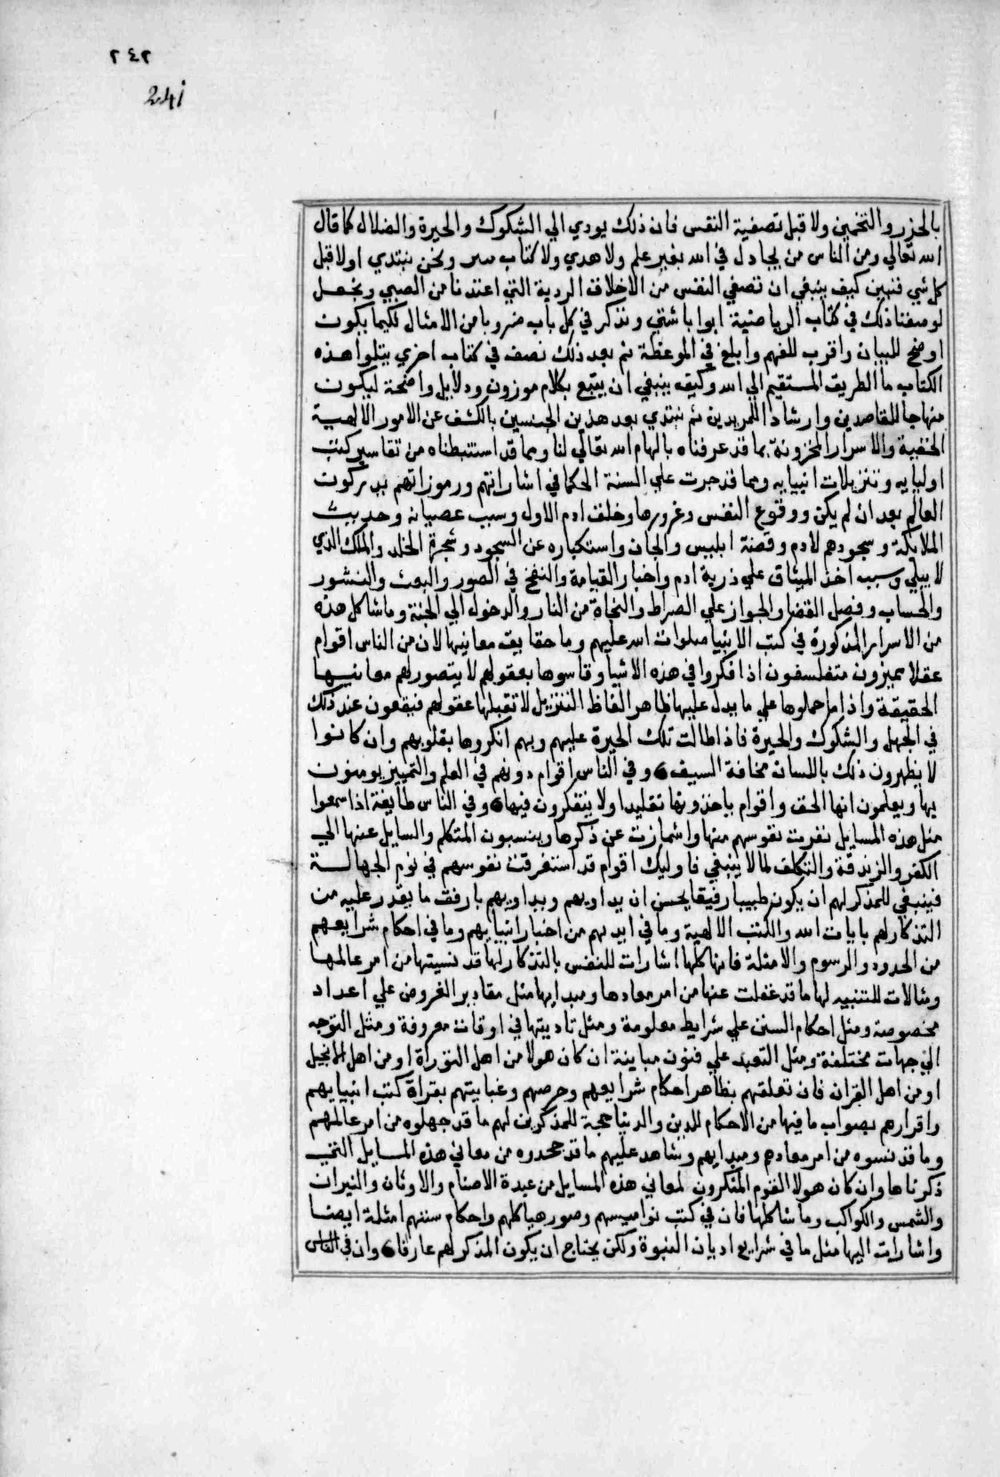 ٢٤٢
241
بالحزر والتخمين ولا قبل تصفية النفس فان ذلك يودي الي الشكوك والحيرة والضلال كما قال
الله تعالي ومن الناس من يجادل في الله بغير علم ولا هدي ولا كتاب منير ونحن نبتدي اولا قبل
كل شي فنبين كيف ينبغي ان تصفي النفس من الاخلاق الردية التي اعتدنا من الصبي ونجعل
لوصفنا ذلك في كتاب الرياضية ابوابا شتي ونذكر في كل باب ضروبا من الامثال لكيما يكون
اوضح للبيان واقرب للفهم وابلغ في الموعظة ثم بعد ذلك نصف في كتاب اخري يتلوا هذه
الكتاب ما الطريق المستقيم الي الله وكيف ينبغي ان يتبع بكلام موزون ودلايل واضحة ليكون
منهاجا للقاصدين وارشادا للمريدين ثم نبتدي بعد هذين الجنسين بالكشف عن الامور الالهية
الخفية والاسرار المخزونة بما قد عرفناه بالهام الله تعالي لنا ومما قد استنبطناه من تفاسير كتب
اوليايه وتنزيلات انبيايه ومما قد جرت علي السنة الحكما في اشاراتهم ورموزاتهم بد بركون
العالم بعد ان لم يكن ووقوع النفس وغرورها وخلف ادم الاول وسبب عصيانه وحديث
الملايكة وسجودهم لادم وقصة ابليس والجان واستكباره عن السجود وشجرة الخلد والملك الذي
لا يبلي وسبب اخذ الميثاق علي ذرية ادم واخبار القيامة والنفخ في الصور والبعث والنشور
والحساب وفصل القضا والجواز علي الصراط والنجاة من النار والدخول الي الجنة وما شاكل هذه
من الاسرار المذكورة في كتب الانبيا صلوات الله عليهم وما حقايق معانيها لان من الناس اقوام
عقلا مميزون متفلسفون اذا فكروا في هذه الاشيا وقاسوها بعقولهم لا يتصور لهم معانيها
الحقيقة واذا ما حملوها علي ما يدل عليها ظاهر الفاظ التنزيل لا تقبلها عقولهم فيقعون عند ذلك
في الجهل والشكوك والحيرة فاذا طالت تلك الحيرة عليهم وبهم انكروها بقلوبهم وان كانوا
لا يظهرون ذلك باللسان مخافة السيف وفي الناس اقوام دونهم في العلم والتمييز يومنون
بها ويعلمون انها الحق واقوام ياخذونها تقليدا ولا يتفكرون فيها وفي الناس طايفة اذا سمعوا
مثل هذه المسايل نفرت نفوسهم منها واشمازت عن ذكرها وينسبون المتكلم والسايل عنها الي
الكفر والزندقة والتكلف لما لا ينبغي فاوليك اقوام قد استغرقت نفوسهم في نوم الجهالة
فينبغي للمذكر لهم ان يكون طبيبا رفيقا يحسن ان يداويهم ويداويهم بارفق ما يقدر عليه من
التذكار لهم بايات الله والكتب الالهية وما في ايديهم من اخبار انبيايهم وما في احكام شرايعهم
من الحدود والرسوم والامثلة فانها كلها اشارات للنفس بالتذكار لها قد نسيتها من امر عالمها
ومثالات للتنبيه لها ما قد غفلت عنها من امر معادها ومبدايها مثل مقادير الفروض علي اعداد
مخصوصة ومثل احكام السنن علي شرايط معلومة ومثل تاديتها في اوقات معروفة ومثل التوجه
الي جهات مختلفة ومثل التعبد علي فنون مباينة ان كان هولا من اهل التوراة او من اهل الانجيل
او من اهل القران فان تعلقهم بظاهر احكام شرايعهم وحرصهم وعنايتهم بقراة كتب انبيايهم
واقرارهم بصواب ما فيها من الاحكام للدين والدنيا حجة للمذكرين لهم ما قد جهلوه من امر عالمهم
وما قد نسوه من امر معادهم ومبدايهم وشاهد عليهم ما قد جحدوه من معاني هذه المسايل التي
ذكرناها وان كان هولا القوم المنكرون لمعاني هذه المسايل من عبدة الاصنام والاوثان والنيران
والشمس والكواكب وما شاكلها فان في كتب نواميسهم وصور هياكلهم واحكام سننهم امثلة ايضا
واشارات اليها مثل ما في شرايع اديان النبوة ولكن يحتاج ان يكون المذكر لهم عارفا وان في الناس